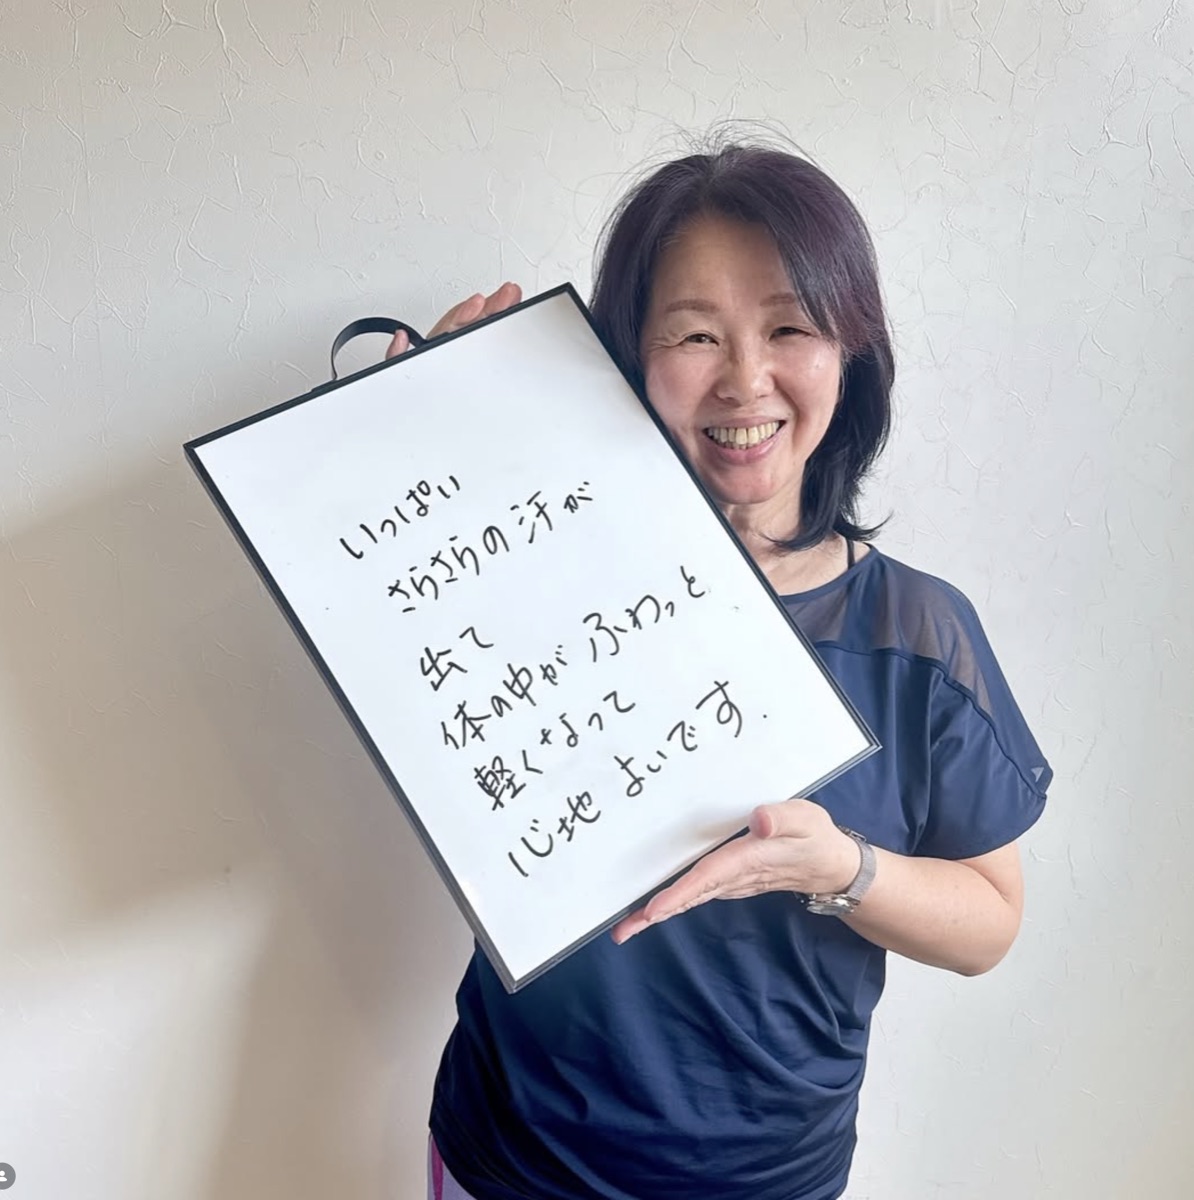 いっぱい
さらさらの汗が
出て
体の中がふわっと
軽くなって
心地よいです.